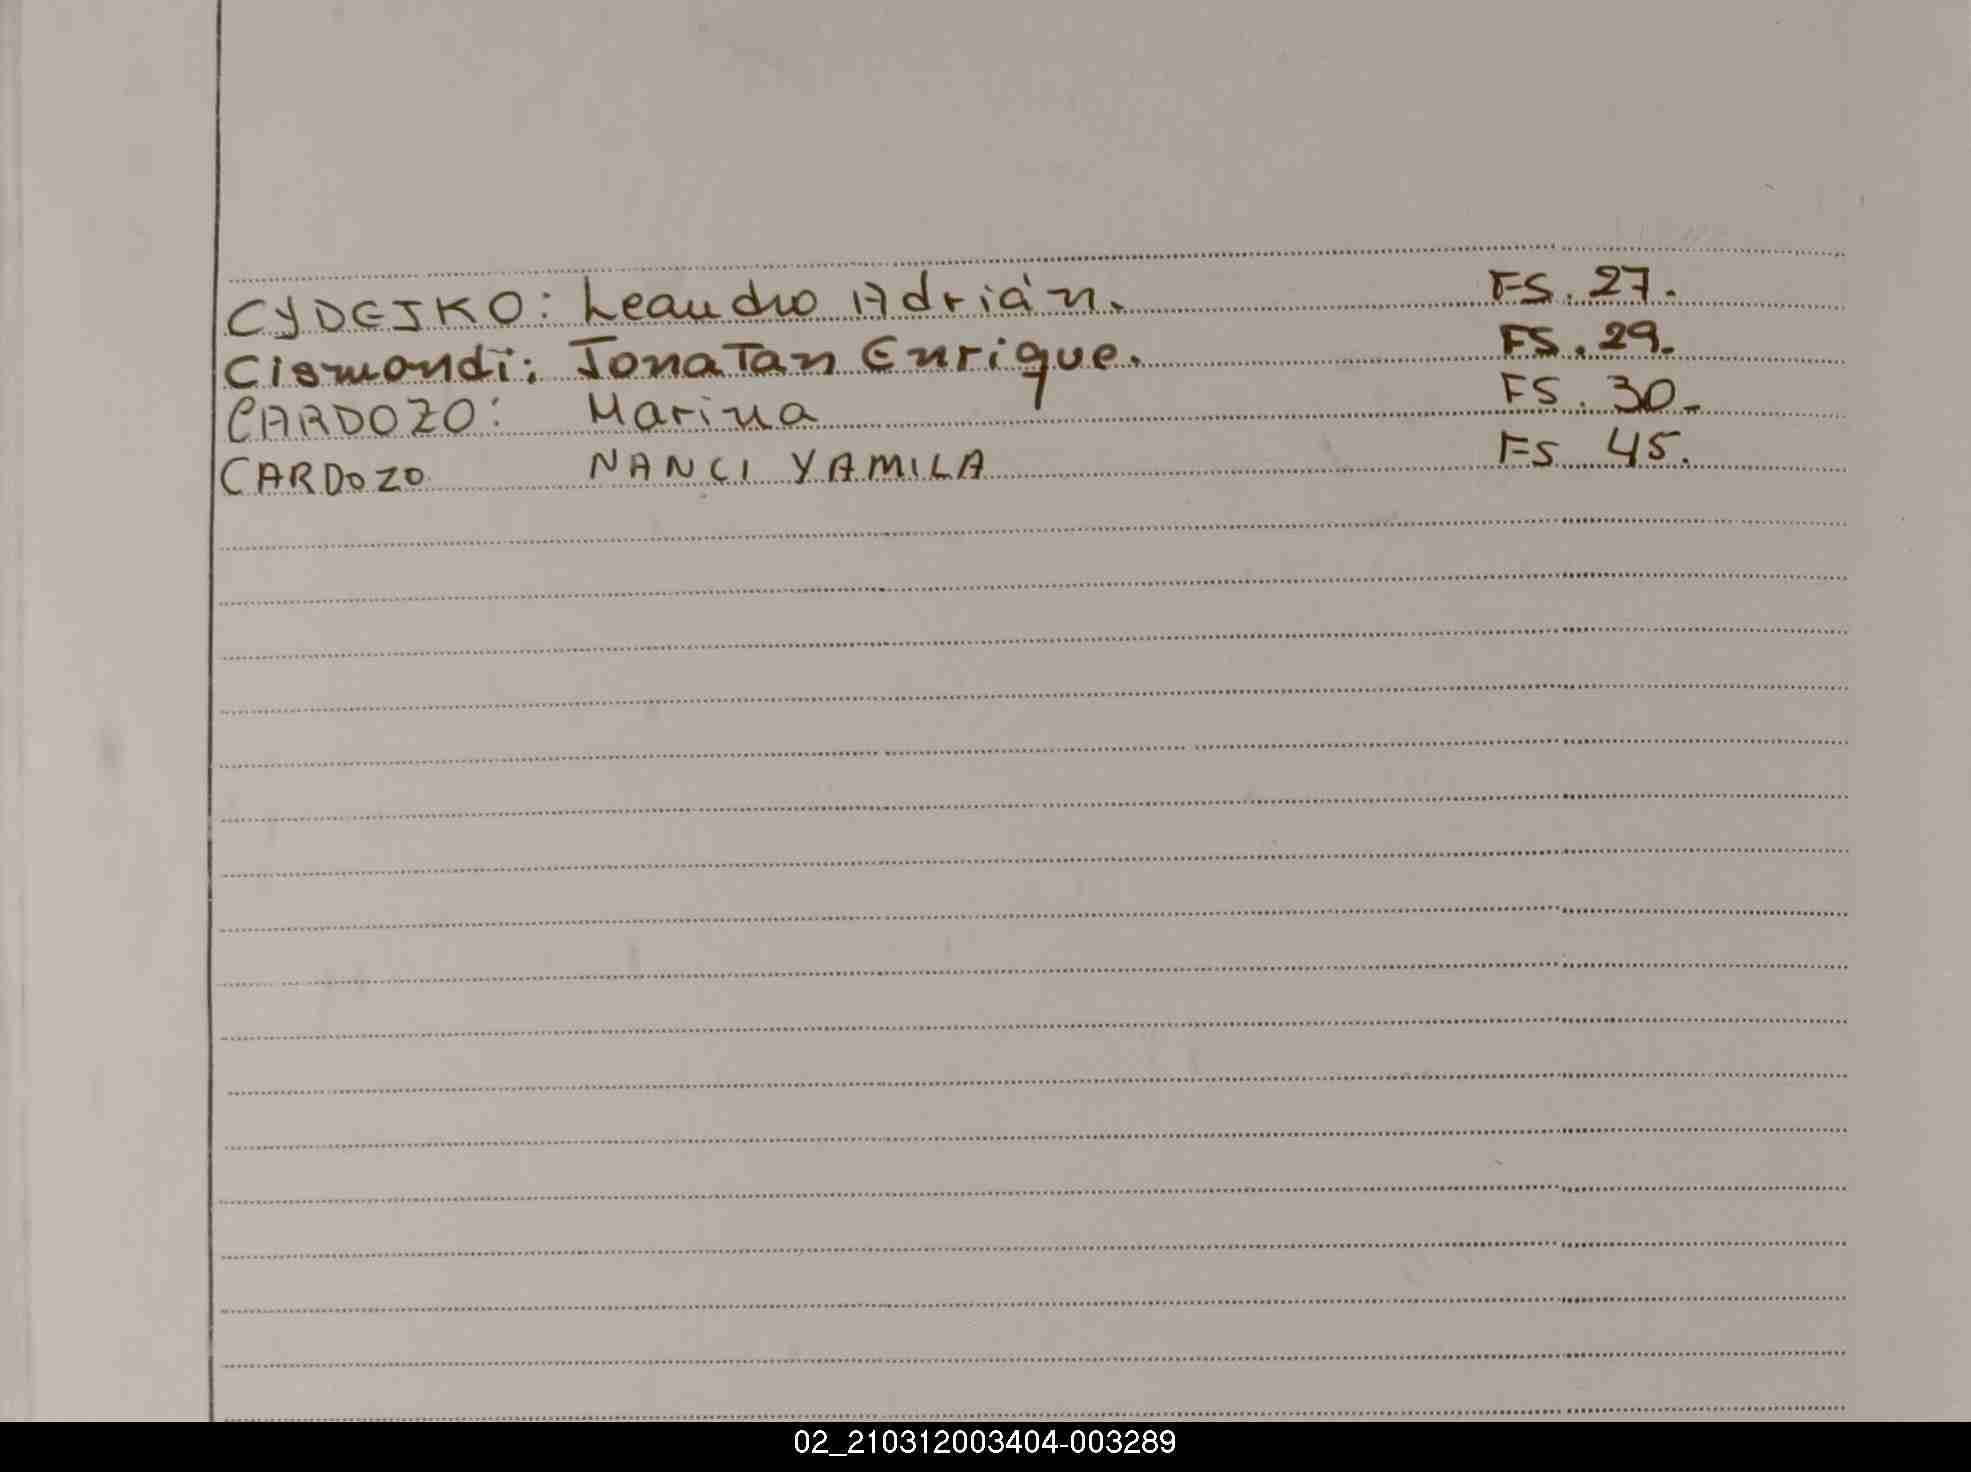 CYDEJKO: Leandro Adrián. FS. 27.
Cismondi: Jonatan Enrique. FS. 29.
CARDOZO: Marina FS. 30.
CARDOZO NANCI YAMILA FS 45.
02_210312003404-003289